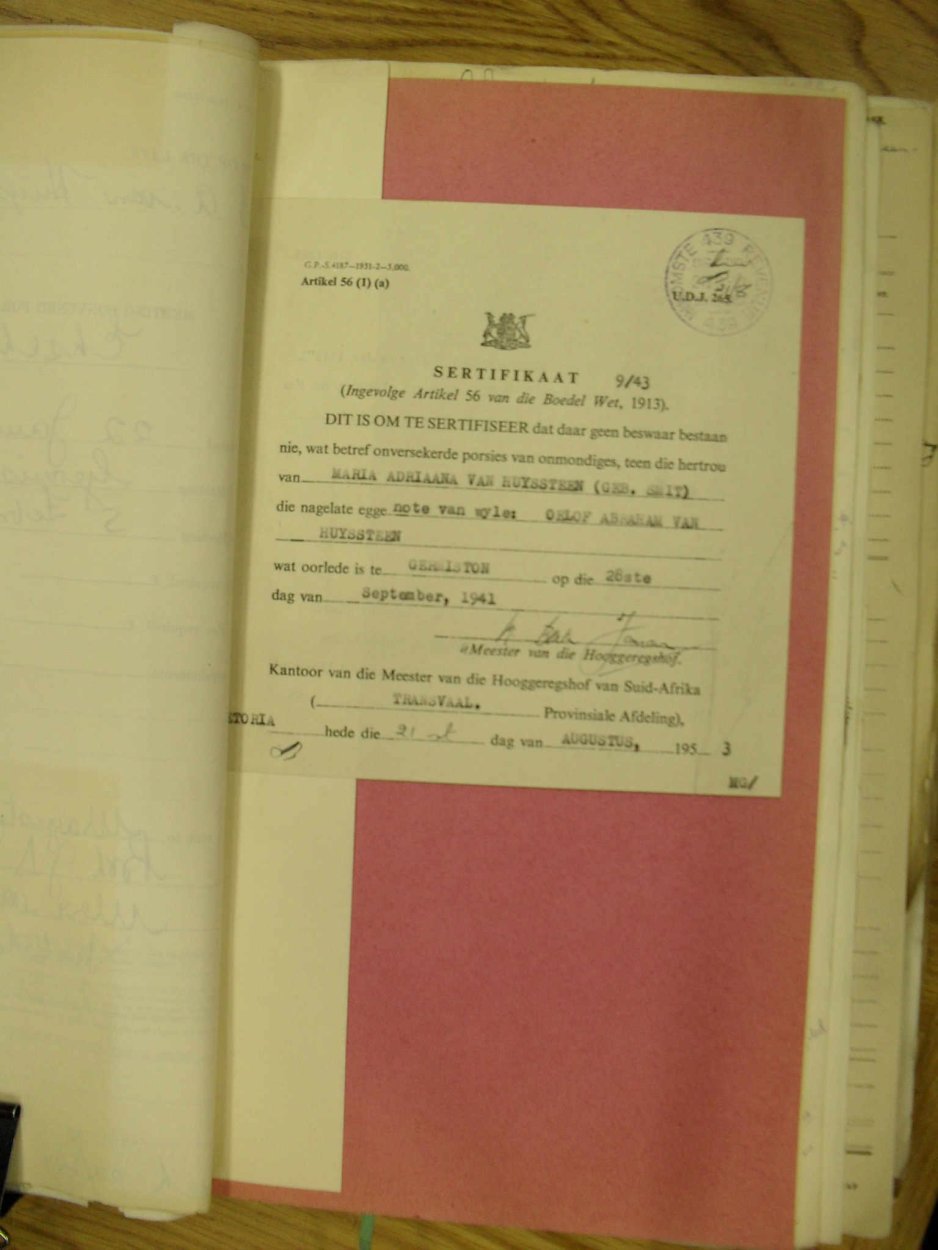 G.P.-S.4187—1951-2—5,000.
Artikel 56 (1) (a)
439
U.D.J. 265.
439
SERTIFIKAAT 9/43
(Ingevolge Artikel 56 van die Boedel Wet, 1913).
DIT IS OM TE SERTIFISEER dat daar geen beswaar bestaan
nie, wat betref onversekerde porsies van onmondiges, teen die hertrou
van MARIA ADRIAANA VAN HUYSSTEEN (GEB. SMIT)
die nagelate egge note van wyle: OELOF ABRAHAM VAN
HUYSSTEEN
wat oorlede is te GERMISTON op die 26ste
dag van September, 1941
Meester van die Hooggeregshof.
Kantoor van die Meester van die Hooggeregshof van Suid-Afrika
( TRANSVAAL. Provinsiale Afdeling),
TORIA hede die 21 st dag van AUGUSTUS, 195 3
MG/